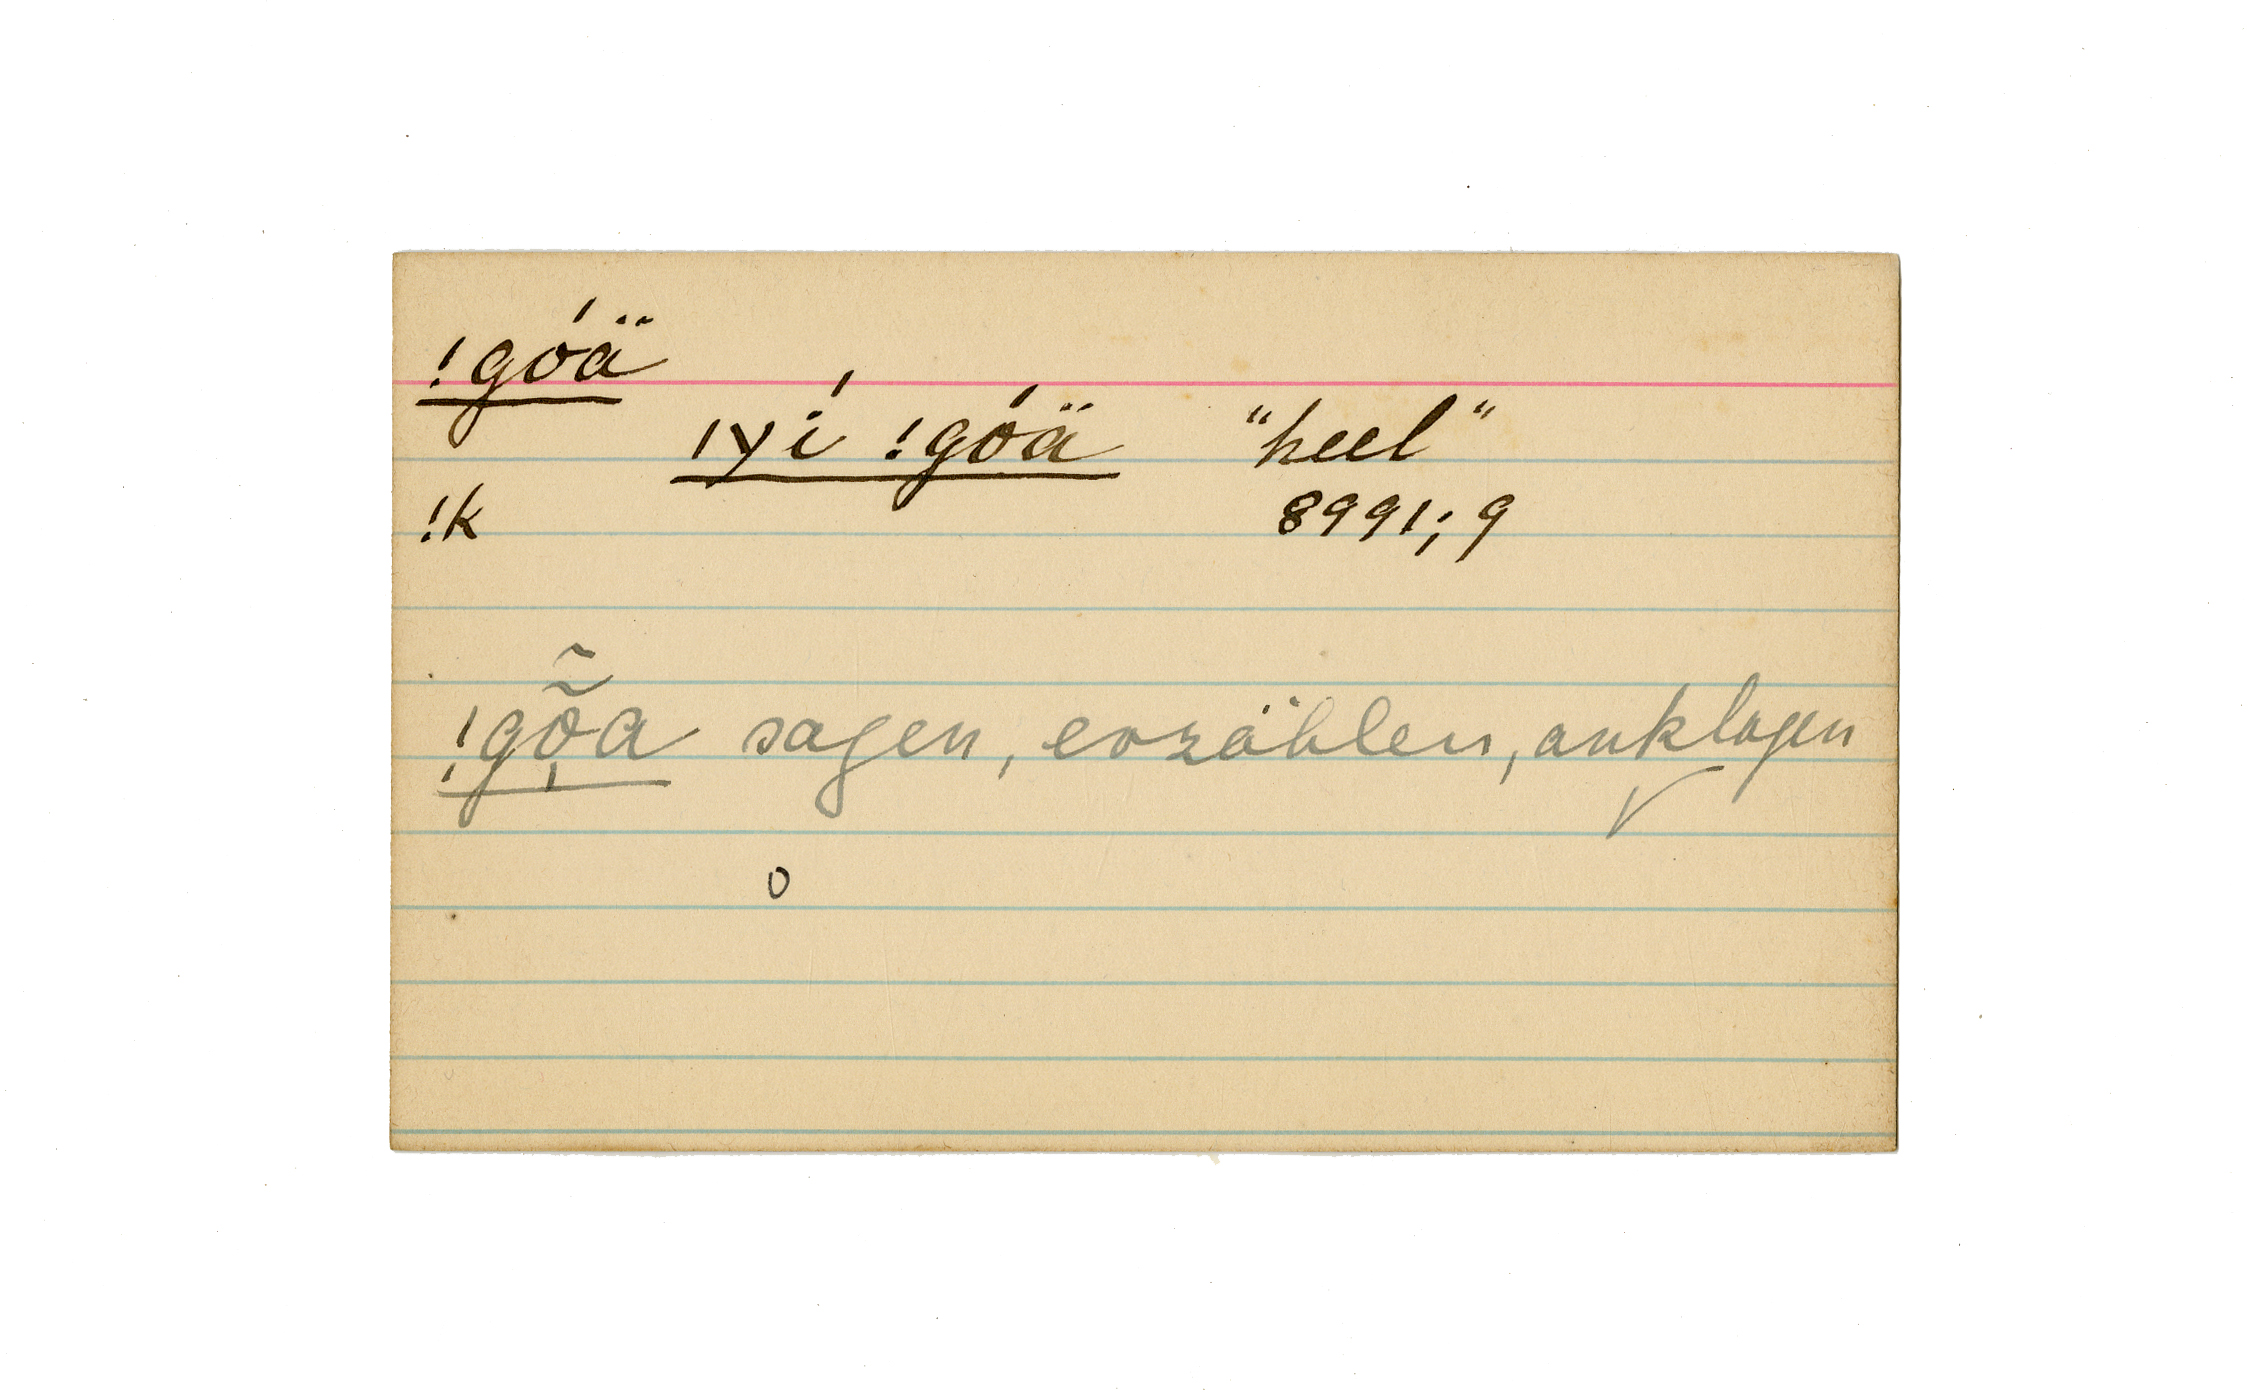 !góä
ıyí !góä "heel"
!k 8991; 9
!gõ̩̃a sagen, erzählen, anklagen
V
o